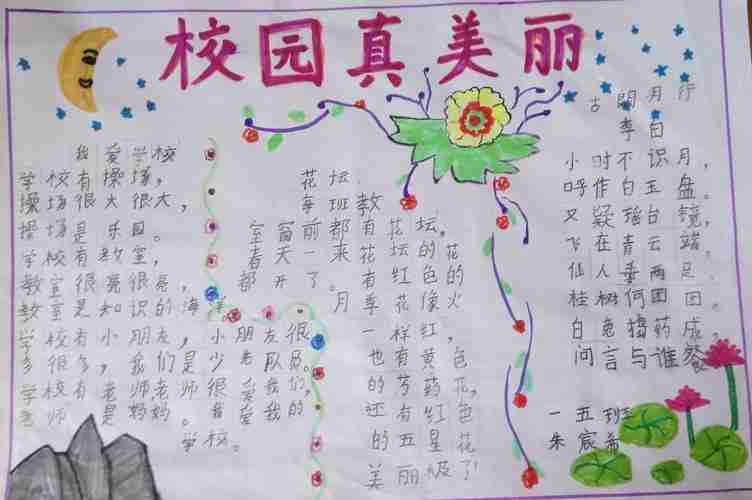 校园真美丽
我爱学校
学校有操场，
操场很大很大，
操场是乐园。
学校有教室，
教室很亮很亮，
教室是知识的海洋。
学校有小朋友，小朋友很
多很多，我们是少先队员。
学校有老师，老师很爱我们，
老师是妈妈。我爱我的
学校。
花坛
每班教
室窗前都有花坛，
春天一来花坛的花
都开了。有红色的
月季花像火
一样红，
也有黄色
的芍药花，
还有红色
的五星花
美丽极了！
古朗月行
李白
小时不识月，
呼作白玉盘。
又疑瑶台镜，
飞在青云端。
仙人垂两足
桂树何团团。
白兔捣药成，
问言与谁餐
一五班
朱宸希